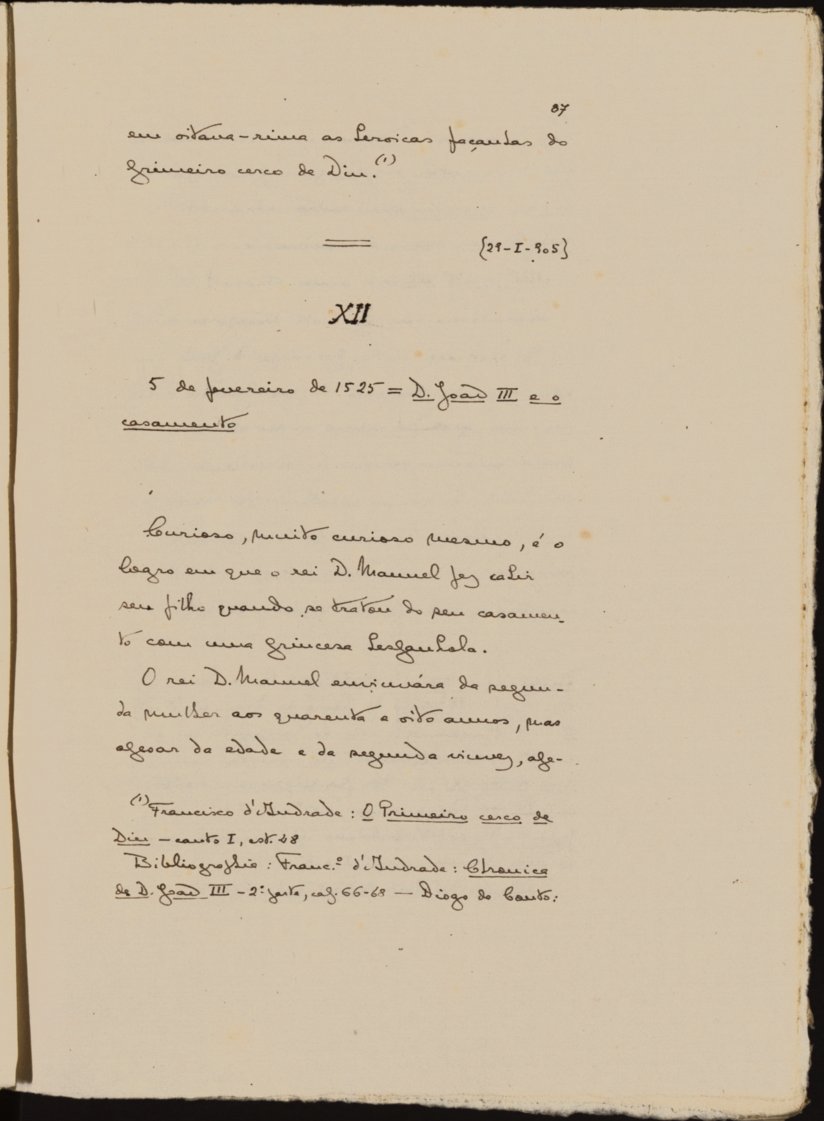 87
em oitava-rima as heroicas façanhas do
primeiro cerco de Diu.(1)
{29-I-905}
XII
5 de fevereiro de 1525 = D. João III e o
casamento
Curioso, muito curioso mesmo, é o
logro em que o rei D. Manuel fez cahir
seu filho quando se tratou do seu casamen-
to com uma princesa hespanhola.
O rei D. Manuel enviuvára da segun-
da mulher aos quarenta e oito annos, mas
apesar da edade e da segunda viuvez, ape-
(1) Francisco d'Andrade: O Primeiro cerco de
Diu - canto I, est. 48
Bibliographia: Franc.º d'Andrade: Chronica
de D. João III - 2ª parte, cap. 66-68 — Diogo do Couto: